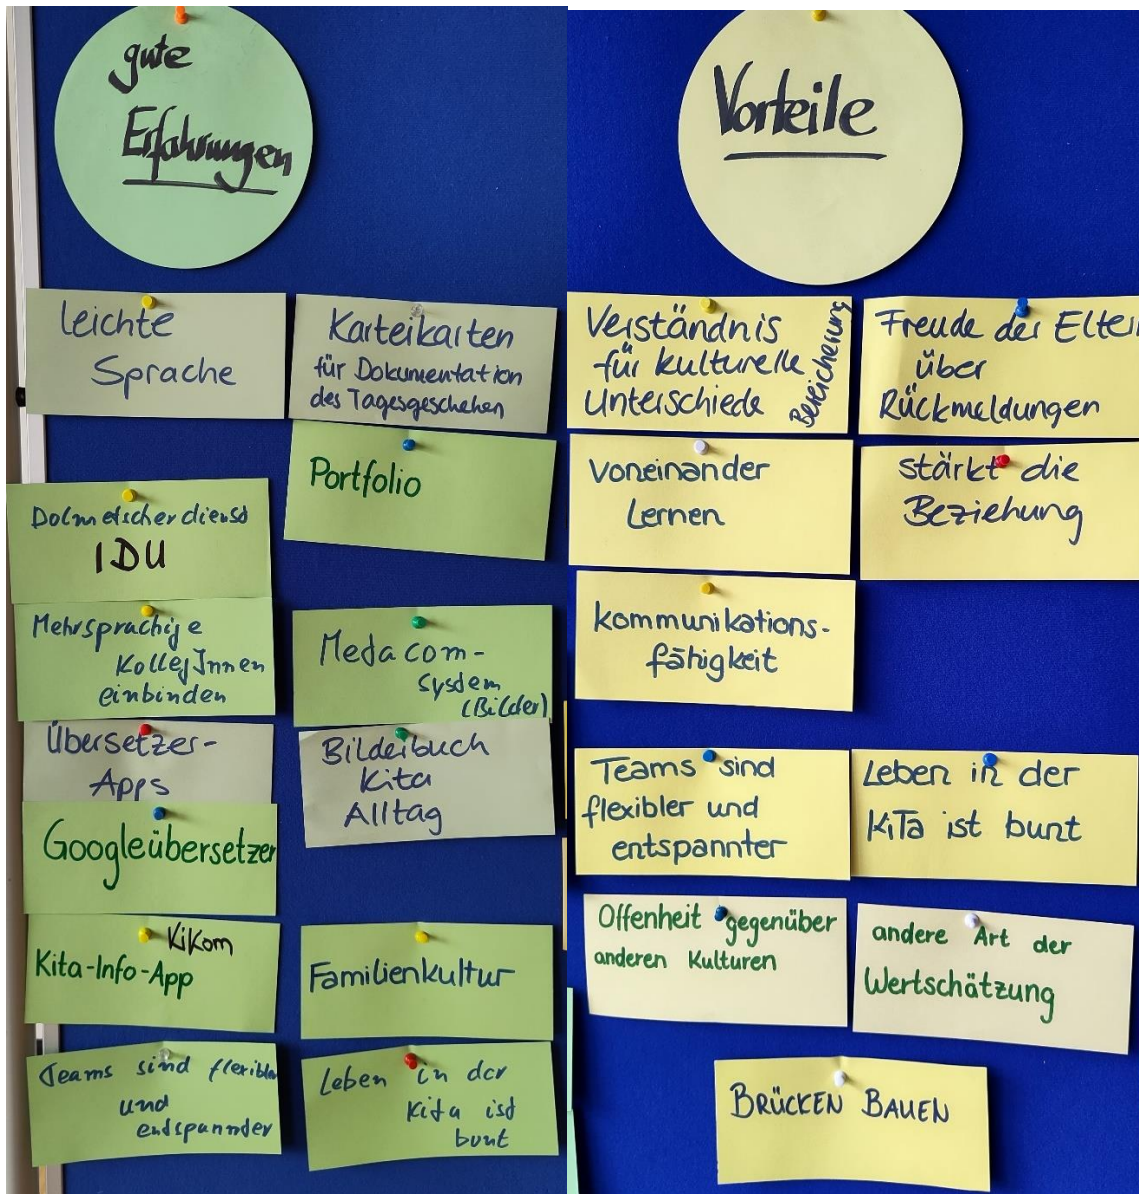 gute
Erfahrungen
leichte
Sprache
Karteikarten
für Dokumentation
des Tagesgeschehen
Portfolio
Dolmetscherdiensd
IDU
Mehrsprachige
KollegInnen
einbinden
Metacom-
sysdem
(Bilder)
Übersetzer-
Apps
Bilderbuch
Kita
Alltag
Googleübersetzer
KiKom
Kita-Info-App
Familienkultur
Teams sind flexibler
und
endspannder
Leben in der
Kita isd
bunt
Vorteile
Verständnis
für kulturelle
Unterschiede
Bereicherung
Freude der Elter
über
Rückmeldungen
Voneinander
Lernen
stärkt die
Beziehung
kommunikations-
fähigkeit
Teams sind
flexibler und
entspannter
Leben in der
KiTa ist bunt
Offenheit gegenüber
anderen Kulturen
andere Art der
Wertschätzung
BRÜCKEN BAUEN